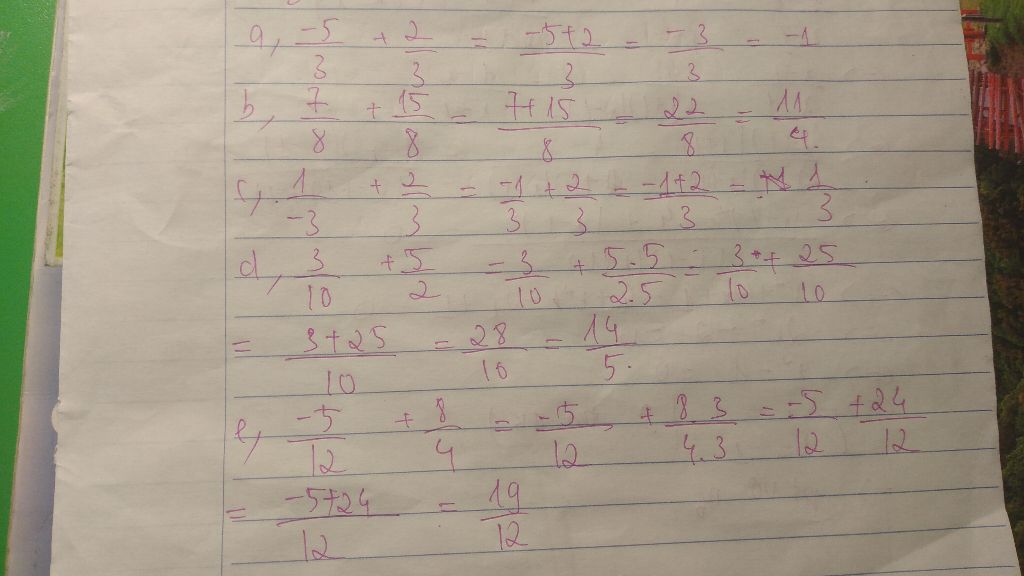 a, -5/3 + 2/3 = -5+2/3 = -3/3 = -1
b, 7/8 + 15/8 = 7+15/8 = 22/8 = 11/4.
c, 1/-3 + 2/3 = -1/3 + 2/3 = -1+2/3 = 1/3
d, 3/10 + 5/2 = 3/10 + 5.5/2.5 = 3/10 + 25/10
= 3+25/10 = 28/10 = 14/5.
e, -5/12 + 8/4 = -5/12 + 8 3/4.3 = -5/12 + 24/12
= -5+24/12 = 19/12